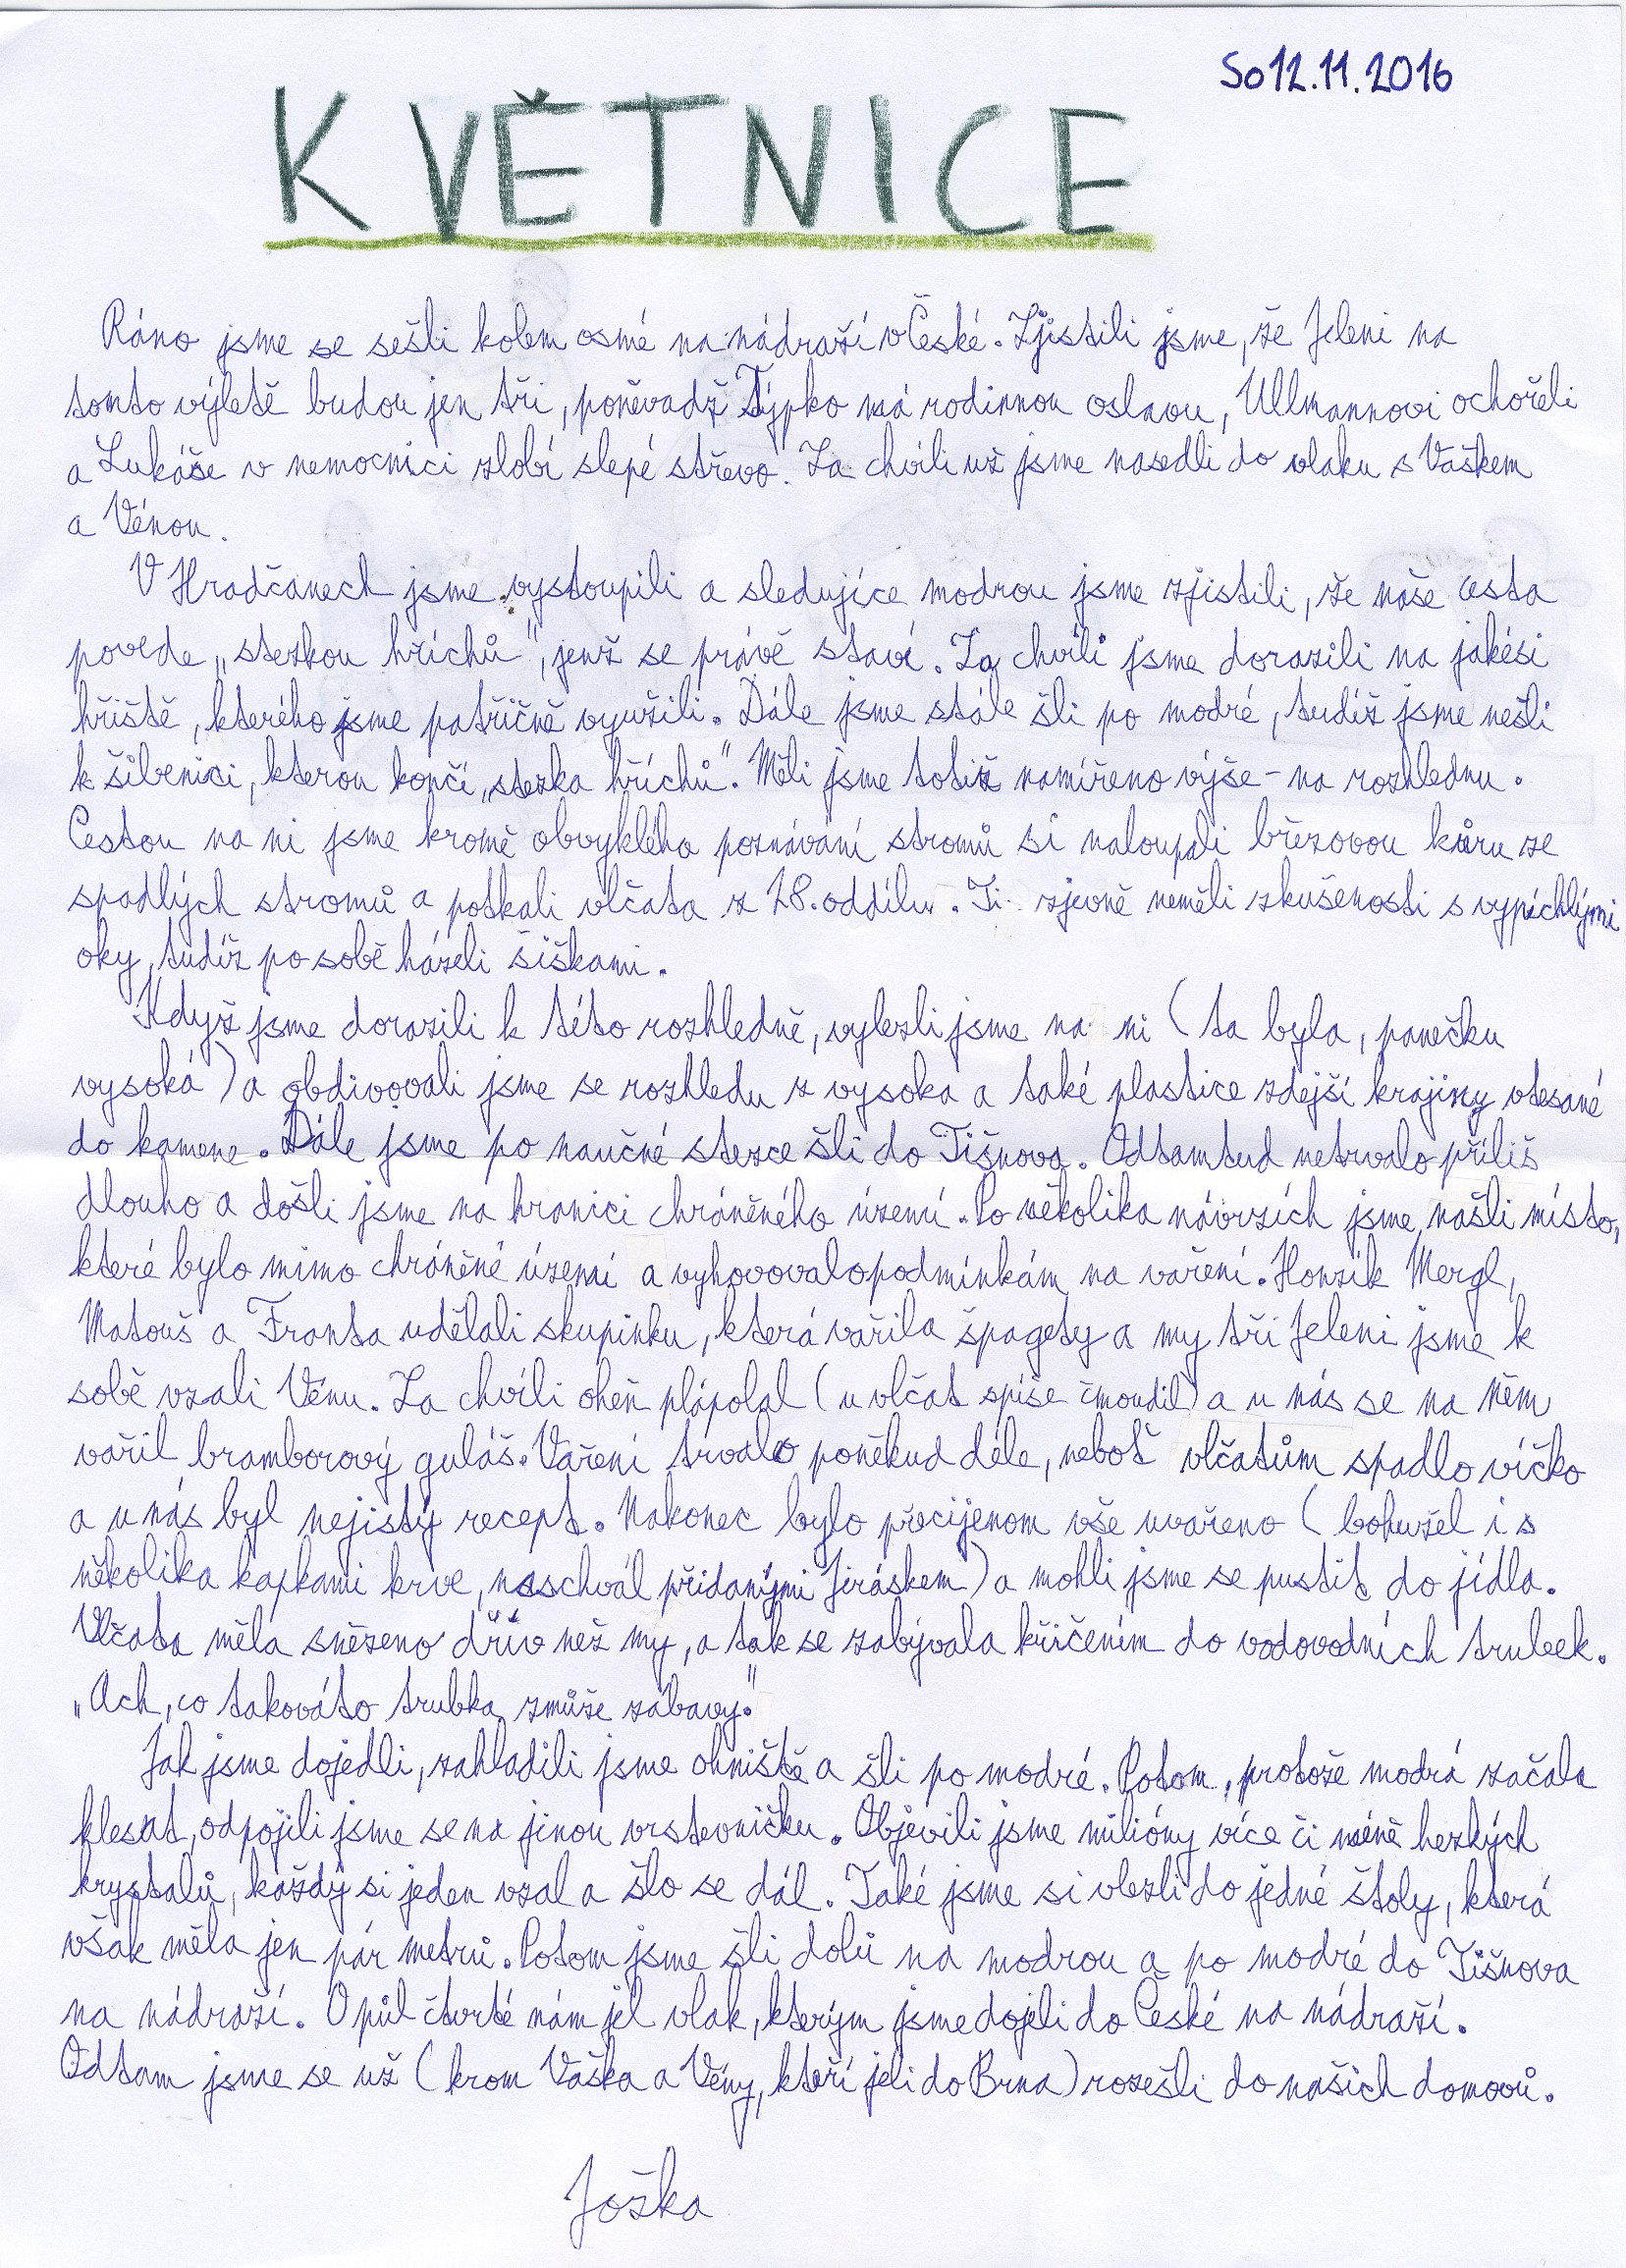 So 12.11.2016
KVĚTNICE
Ráno jsme se sešli kolem osmé na nádraží v České. Zjistili jsme, že Jeleni na
tomto výletě budou jen tři, poněvadž Týpko má rodinnou oslavu, Ullmannovi ochořeli
a Lukáše v nemocnici zlobí slepé střevo. Za chvíli už jsme nasedli do vlaku s Vaškem
a Vénou.
V Hradčanech jsme vystoupili a sledujíce modrou jsme zjistili, že naše cesta
povede „stezkou hříchů", jenž se právě staví. Za chvíli jsme dorazili na jakési
hřiště, kterého jsme patřičně využili. Dále jsme stále šli po modré, tudíž jsme nešli
k šibenici, kterou končí „stezka hříchů". Měli jsme totiž namířeno výše - na rozhlednu.
Cestou na ni jsme kromě obvyklého poznávání stromů si naloupali březovou kůru ze
spadlých stromů a potkali vlčata z 28. oddílu. Ti zjevně neměli zkušenosti s vypíchlými
oky, tudíž po sobě házeli šiškami.
Když jsme dorazili k této rozhledně, vylezli jsme na ni (ta byla, panečku
vysoká) a obdivovali jsme se rozhledu z vysoka a také plastice zdejší krajiny vtesané
do kamene. Dále jsme po naučné stezce šli do Tišnova. Odtamtud netrvalo příliš
dlouho a došli jsme na hranici chráněného území. Po několika návrzích jsme našli místo,
které bylo mimo chráněné území a vyhovovalo podmínkám na vaření. Honzík Mergl,
Matouš a Franta udělali skupinku, která vařila špagety a my tři Jeleni jsme k
sobě vzali Vénu. Za chvíli oheň plápolal (u vlčat spíše čmoudil) a u nás se na něm
vařil bramborový guláš. Vaření trvalo poněkud déle, neboť vlčatům spadlo víčko
a u nás byl nejistý recept. Nakonec bylo přecijenom vše uvařeno (bohužel i s
několika kapkami krve, naschvál přidanými Jiráskem) a mohli jsme se pustit do jídla.
Vlčata měla snězeno dřív než my, a tak se zabývala křičením do vodovodních trubek.
„Ach, co takováto trubka zmůže zábavy."
Jak jsme dojedli, zahladili jsme ohniště a šli po modré. Potom, protože modrá začala
klesat, odpojili jsme se na jinou vrstevničku. Objevili jsme milióny více či méně hezkých
krystalů, každý si jeden vzal a šlo se dál. Také jsme si vlezli do jedné štoly, která
však měla jen pár metrů. Potom jsme šli dolů na modrou a po modré do Tišnova
na nádraží. O půl čtvrté nám jel vlak, kterým jsme dojeli do České na nádraží.
Odtam jsme se už (krom Vaška a Vény, kteří jeli do Brna) rozešli do našich domovů.
Jožka